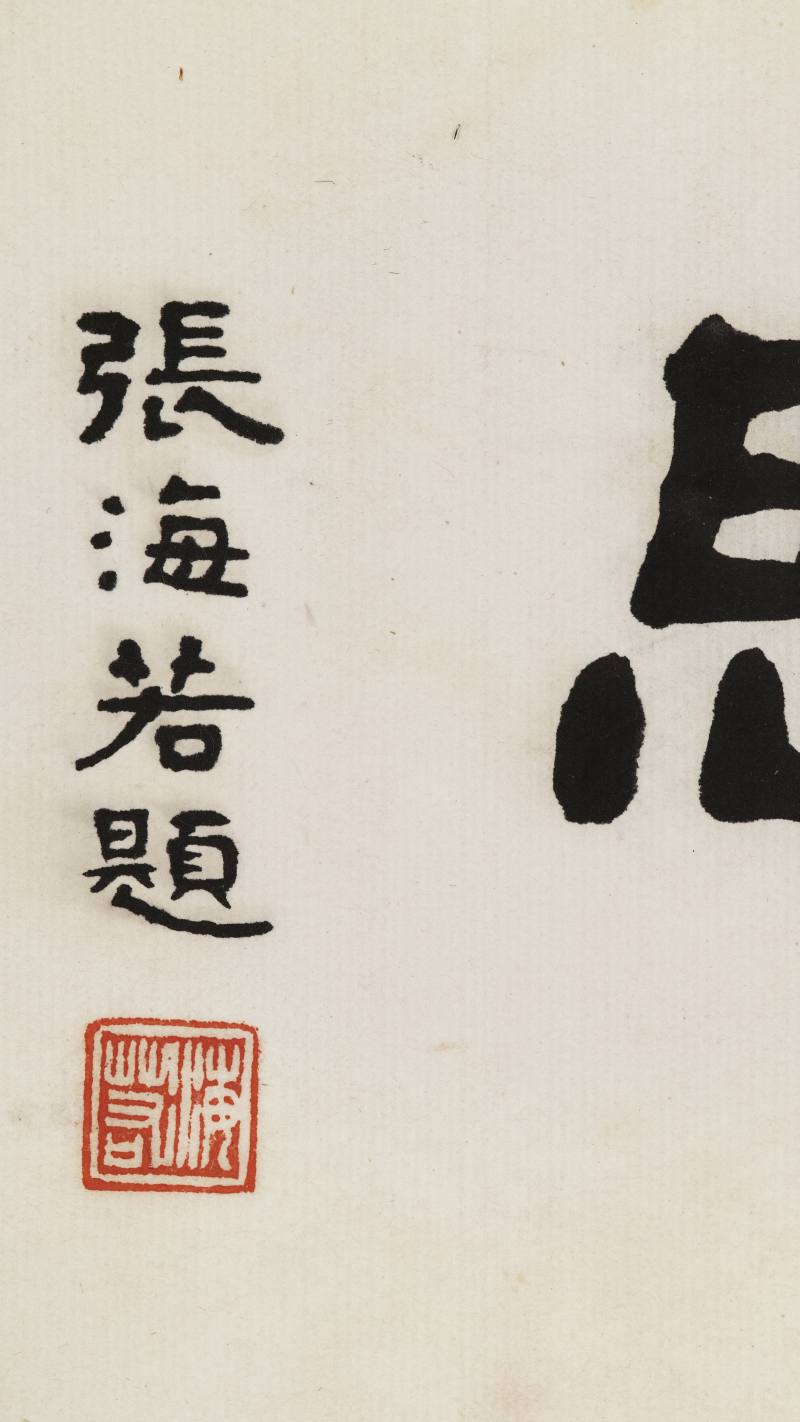 張海若題
海若